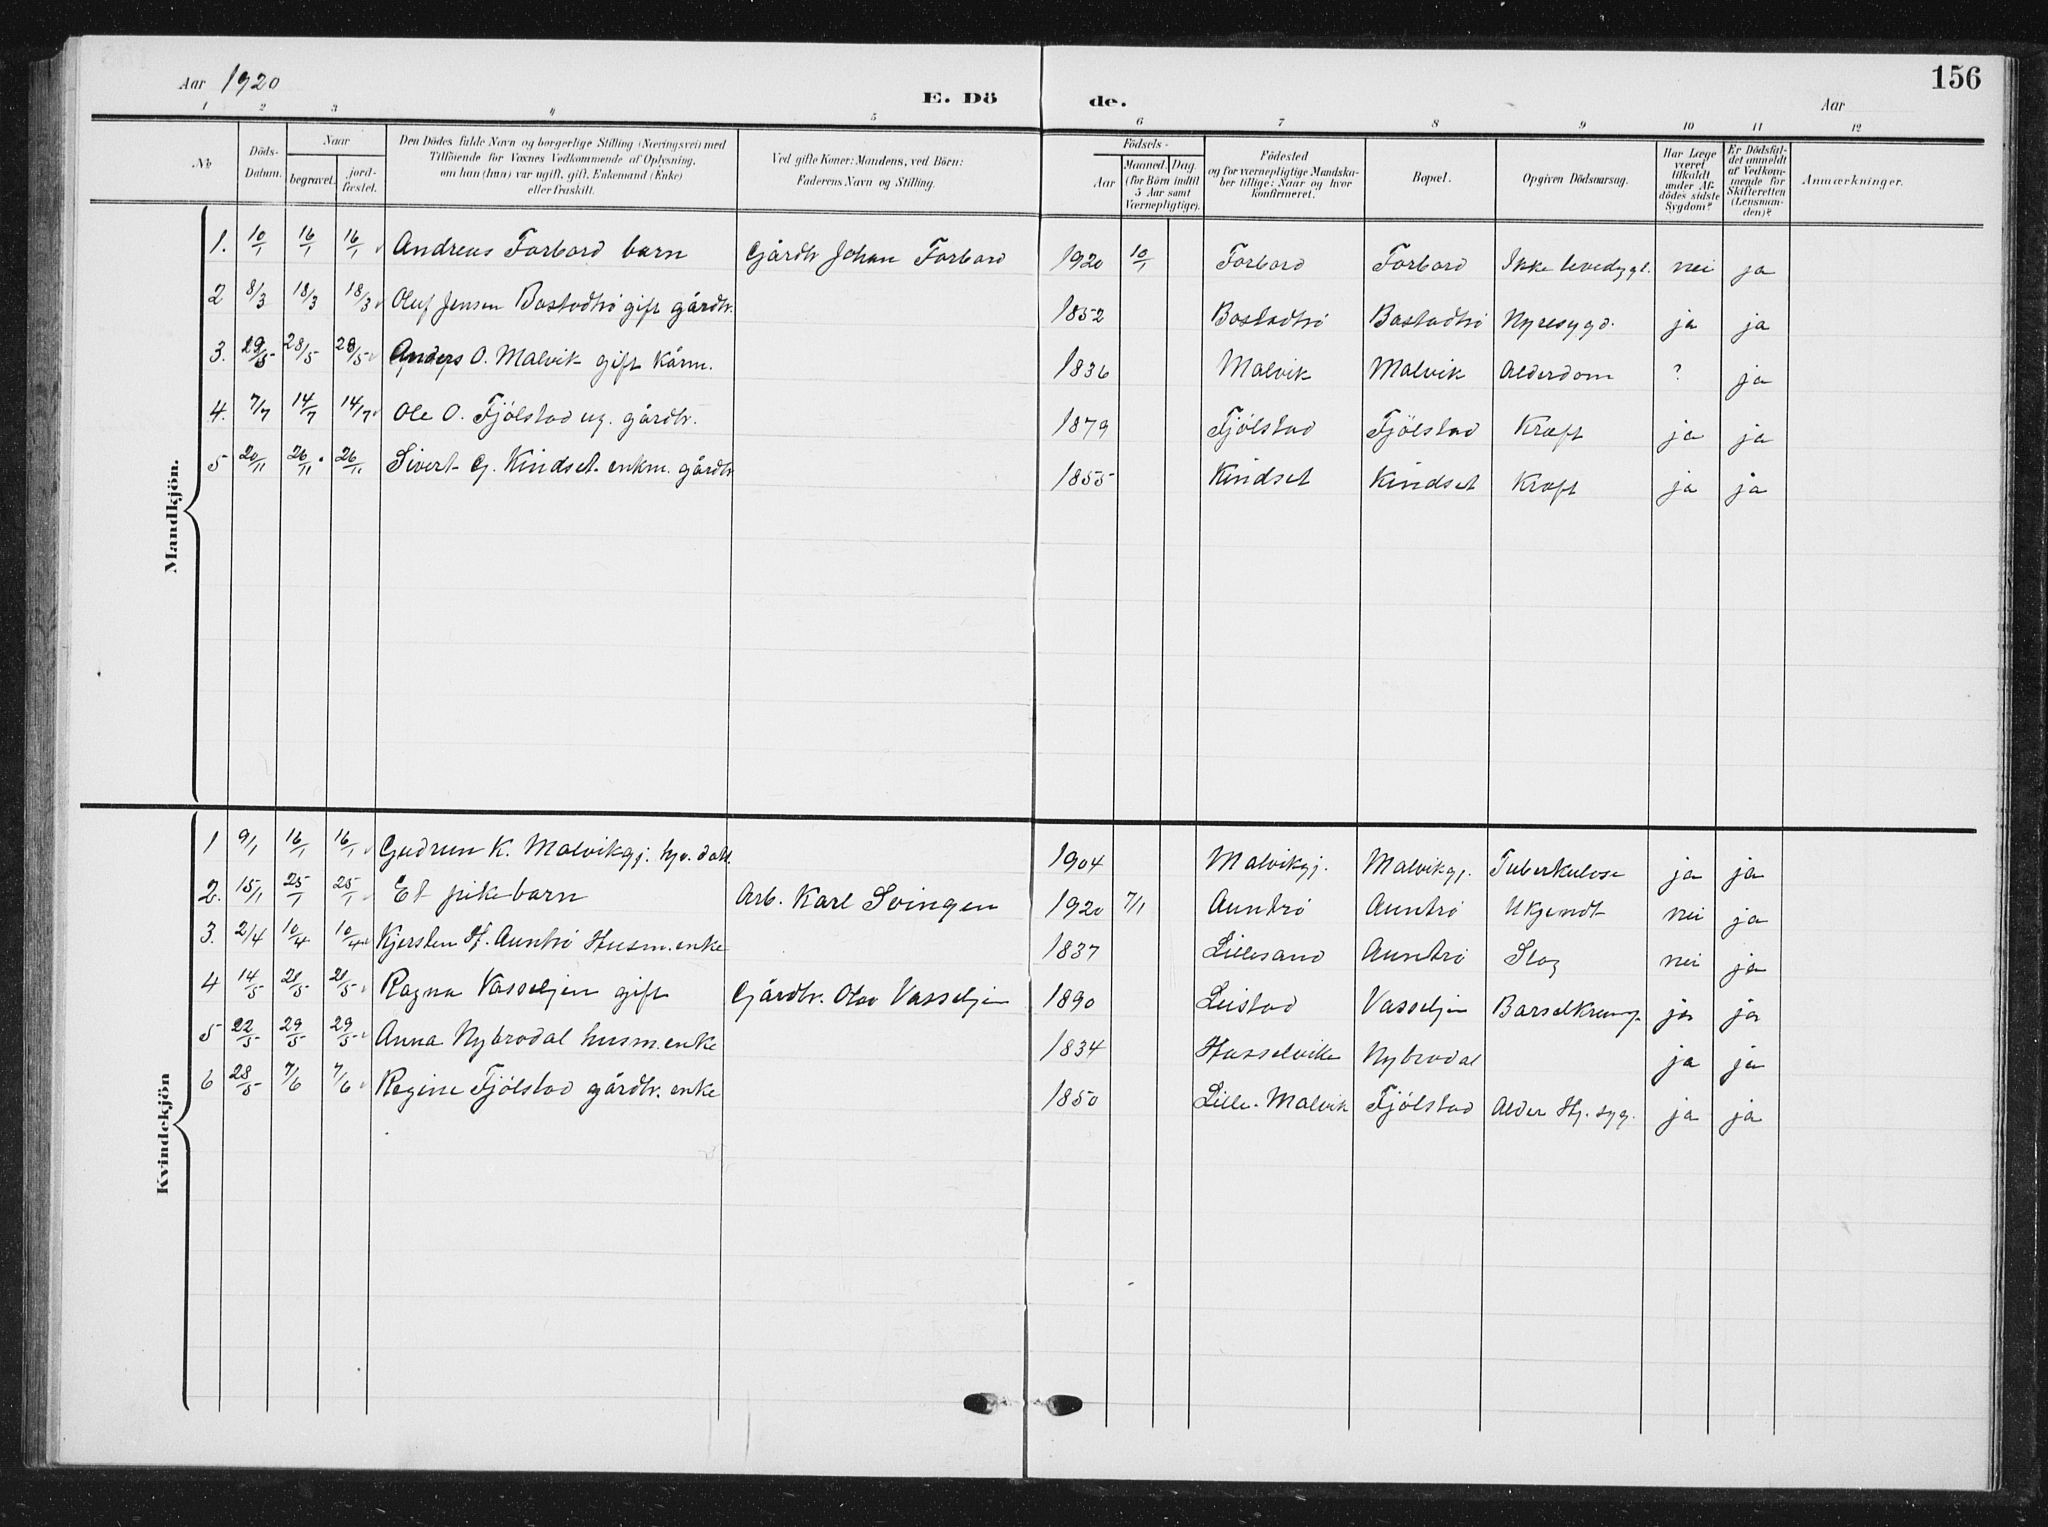 Aar 1920
E. Dö de.
Aar
156
1 2 3 4 5 6 7 8 9 10 11 12
No.
Döds-Datum.
Naar
begravet.
jord-fæstet.
Den Dödes fulde Navn og borgerlige Stilling (Næringsvei) med Tilföiende for Voxnes Vedkommende af Oplysning, om han (hun) var ugift, gift, Enkemand (Enke) eller fraskilt.
Ved gifte Koner: Mandens, ved Börn: Faderens Navn og Stilling.
Födsels-
Aar
Maaned. Dag.
(for Börn indtil 5 Aar samt Værnepligtige).
Födested og for værnepligtige Mandskaber tillige: Naar og hvor konfirmeret.
Bopæl.
Opgiven Dödsaarsag.
Har Læge været tilkaldt under Afdödes sidste Sygdom?
Er Dödsfaldet anmeldt af Vedkommende for Skifteretten (Lensmanden)?
Anmærkninger.
Mandkjön.
1. 10/1 16/1 16/1 Andreas Forbord barn Gjårdbr Johan Forbord 1920 10/1 Forbord Forbord Ikke levedygt. nei ja
2 8/3 18/3 18/3 Oluf Jensen Bostadtrö gift gårdbr. 1852 Bostadtrö Bostadtrö Nyresygd. ja ja
3. 19/5 28/5 28/5 Anders O. Malvik gift kårm. 1836 Malvik Malvik Alderdom ? ja
4. 7/7 14/7 14/7 Ole O. Fjölstad ug. gårdbr. 1879 Fjölstad Fjölstad Kræft ja ja
5 20/11 26/11 26/11 Sivert G. Kindset enkm. gårdbr 1855 Kindset Kindset Kræft ja ja
Kvindekjön
1 9/1 16/1 16/1 Gudrun K. Malvikgj. hjv. datt. 1904 Malvikgj. Malvikgj. Tuberkulose ja ja
2. 15/1 25/1 25/1 Et pikebarn Arb. Karl Svingen 1920 7/1 Auntrö Auntrö Ukjendt nei ja
3. 2/4 10/4 10/4 Kjersten H. Auntrö Husm.enke 1837 Lillesand Auntrö Slag nei ja
4 14/5 21/5 21/5 Ragna Vasseljen gift Gjårdbr. Olav Vasseljen 1890 Leistad Vasseljen Barselkramp. ja ja
5 22/5 29/5 29/5 Anna Nybrodal husm.enke 1834 Hasselvika Nybrodal ja ja
6 28/5 7/6 7/6 Regine Fjölstad gårdbr. enke 1850 Lille-Malvik Fjölstad Alder Hj. syg. ja ja